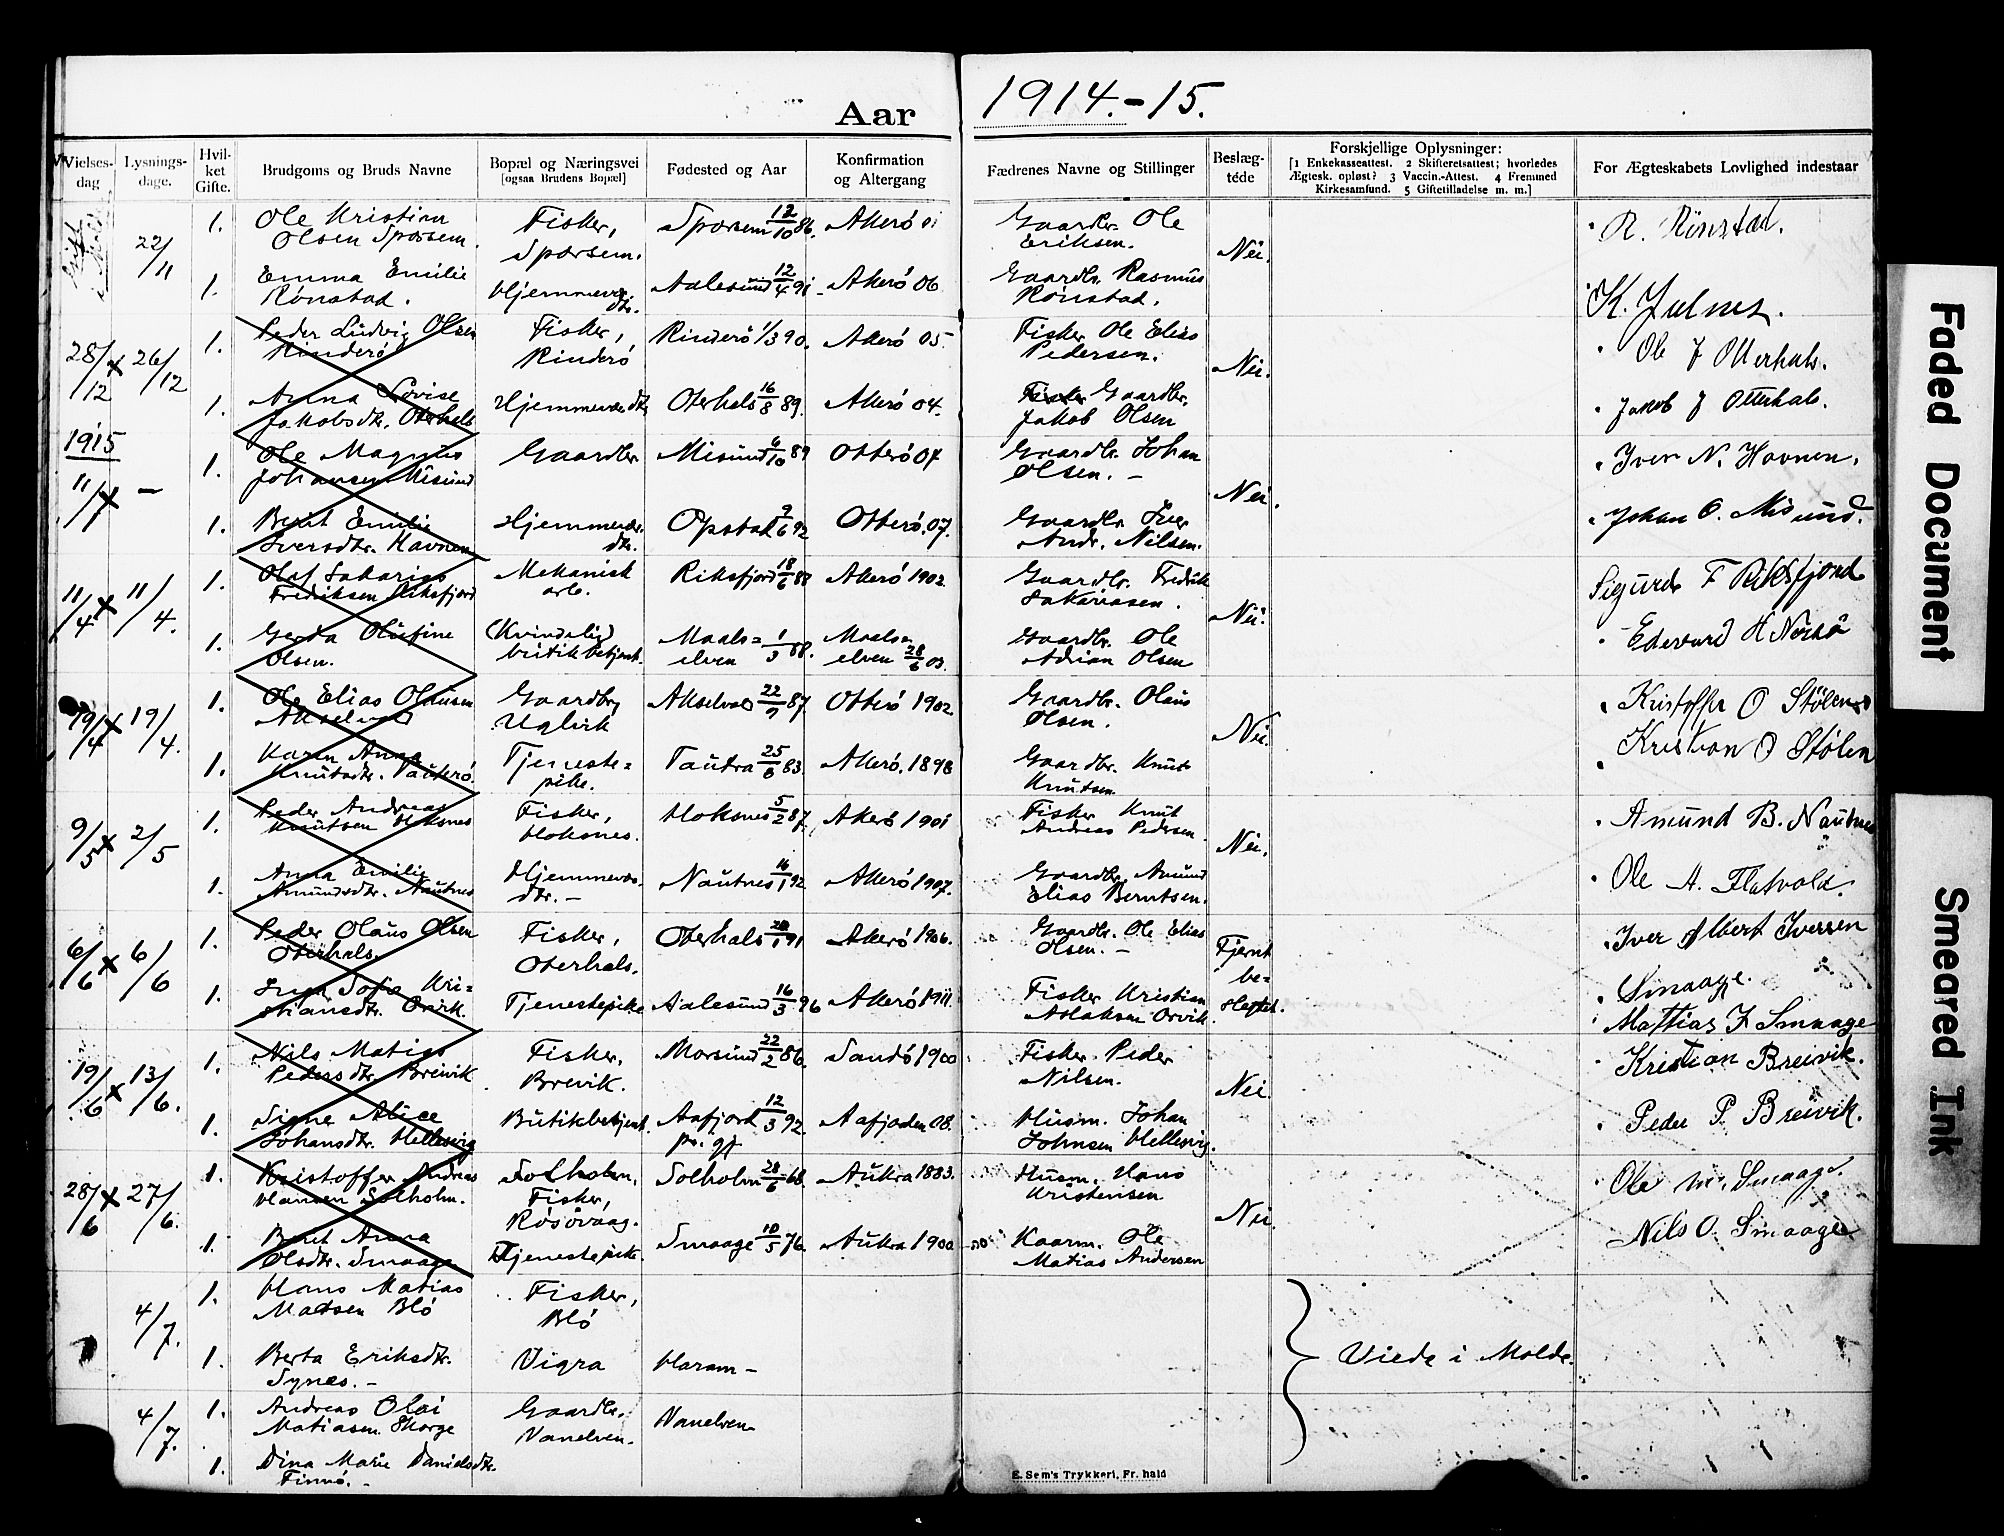 Aar 1914.-15.
Vielses-dag | Lysnings-dage. | Hvil-ket Gifte. | Brudgoms og Bruds Navne | Bopæl og Næringsvei [ogsaa Brudens Bopæl] | Fødested og Aar | Konfirmation og Altergang | Fædrenes Navne og Stillinger | Beslæg-téde | Forskjellige Oplysninger: [1 Enkekasseattest. 2 Skifteretsattest; hvorledes Ægtesk. opløst? 3 Vaccin.-Attest. 4 Fremmed Kirkesamfund. 5 Giftetilladelse m. m.] | For Ægteskabets Lovlighed indestaar
22/11 | 1. | Ole Kristian Olsen Sporsem. | Fisker, Sporsem. | Sporsem 12/10 86. | Akerö 01 | Gaardbr. Ole Eriksen. | Nei. | R. Rönstad.
1. | Emma Emilie Rönstad. | Hjemmevær. dtr. | Aalesund 12/4 91 | Akerö 06 | Gaardbr. Rasmus Rönstad. | K. Julnes.
28/12 x | 26/12 | 1. | Peder Ludvig Olsen Rinderö | Fisker, Rinderö | Rinderö 1/3 90. | Akerö 05. | Fisker Ole Elias Pedersen. | Nei. | Ole J Otterhals.
1. | Anna Lovise Jakobsdtr. Oterhals | Hjemmevær.dtr | Oterhals 16/8 89. | Akerö 04. | Fisker Gaardbr. Jakob Olsen | Jakob J Otterhals.
1915
11/1 x | — | 1. | Ole Magnus Johansen Misund | Gaardbr | Misund 6/10 89 | Otterö 07 | Gaardbr. Johan Olsen. — | Nei. | Iver N. Havnen.
1. | Berit Emilie Iversdtr. Havnen | Hjemmevær. dtr. | Opstad 9/6 92 | Otterö. 07. | Gaardbr. Iver Andr. Nilsen. | Johan O. Misund.
11/4 x | 11/4. | 1. | Olaf Sakarias Fredriksen Riksfjord | Mekanisk arb. | Riksfjord 18/6 88 | Akerö 1902. | Gaardbr. Fredrik Sakariasen. | Nei. | Sigurd F Riksfjord
1. | Gerda Olufine Olsen. | (Kvindelig) butikbetjent. | Maals= elven 1/3 88. | Maals= elven 28/6 03. | Gaardbr. Ole Adrian Olsen | Edevard H Nersö
19/4 x | 19/4. | 1. | Ole Elias Olausen Akselvoll | Gaardbr, Uglvik | Akselvoll 22/9 87. | Otterö 1902. | Gaardbr. Olaus Olsen. | Nei. | Kristoffer O Stölen
1. | Karen Anna Knutsdtr. Tauterö. | Tjeneste= pike. | Tautra 25/8 83. | Akerö. 1898 | Gaardbr. Knut Knutsen | Kristian O Stölen
9/5 x | 2/5 | 1. | Peder Andreas Knutsen Hoksnes | Fisker, Hoksnes. | Hoksnes 5/2 87. | Akerö 1901 | Fisker Knut Andreas Pedersen. | Nei. | Amund B. Nautnes
1. | Anna Emilie Amundsdtr. Nautnes | Hjemmevær. dtr. — | Nautnes 16/1 92. | Akerö 1907. | Gaardbr. Amund Elias Berntsen. | Ole A. Flatvold.
6/6 x | 6/6 | 1. | Peder Olaus Olsen Oterhals. | Fisker, Oterhals. | Oterhals 28/1 91 | Akerö 1906. | Gaardbr. Ole Elias Olsen. — | Fjernt be= slegtet. | Iver Albert Iversen Smaage.
1. | Inga Sofie Kri= stiansdtr. Orvik. | Tjenestepike | Aalesund 16/3 96 | Akerö 1911. | Fisker Kristian Aslaksen Orvik. | Mattias J Smaage
19/6 x | 13/6. | 1. | Nils Matias Pedersdtr Breivik | Fisker, Brevik. | Morsund 22/2 86. | Sandö 1900 | Fisker Peder Nilsen. | Nei | Kristian Breivik.
1. | Signe Alice Johansdtr. Hellesvig | Butikbetjent. | Aafjord 12/3 92. pr. gj | Aafjorden 08. | Husm. Johan Johnsen Hellesvig. | Peder P. Breivik.
28/6 x | 27/6. | 1. | Kristoffer Andreas Hansen Solholm. | Solholm, Fisker, Rösövaag. | Solholm 28/6 68. | Aukra 1883. | Husm. Hans Kristensen | Nei. | Ole M. Smaage.
1. | Berit Anna Olsdtr. Smaage | Tjenestepike. | Smaage 10/5 76. | Aukra 1900. | Kaarm. Ole Matias Andersen | Nils O. Smaage
4/7. | 1. | Hans Matias Madsen Blö | Fisker, Blö
1. | Berta Eriksdtr. Synes. — | Vigra | Haram — | Viede i Molde.
4/7. | 1. | Andreas Olai Matiasen Skorge | Gaardbr. Vanelven. | Vanelven
1. | Dina Marie Danielsdtr. Finnö. —
E. Sem's Trykkeri, Fr. hald
Faded Document
Smeared Ink